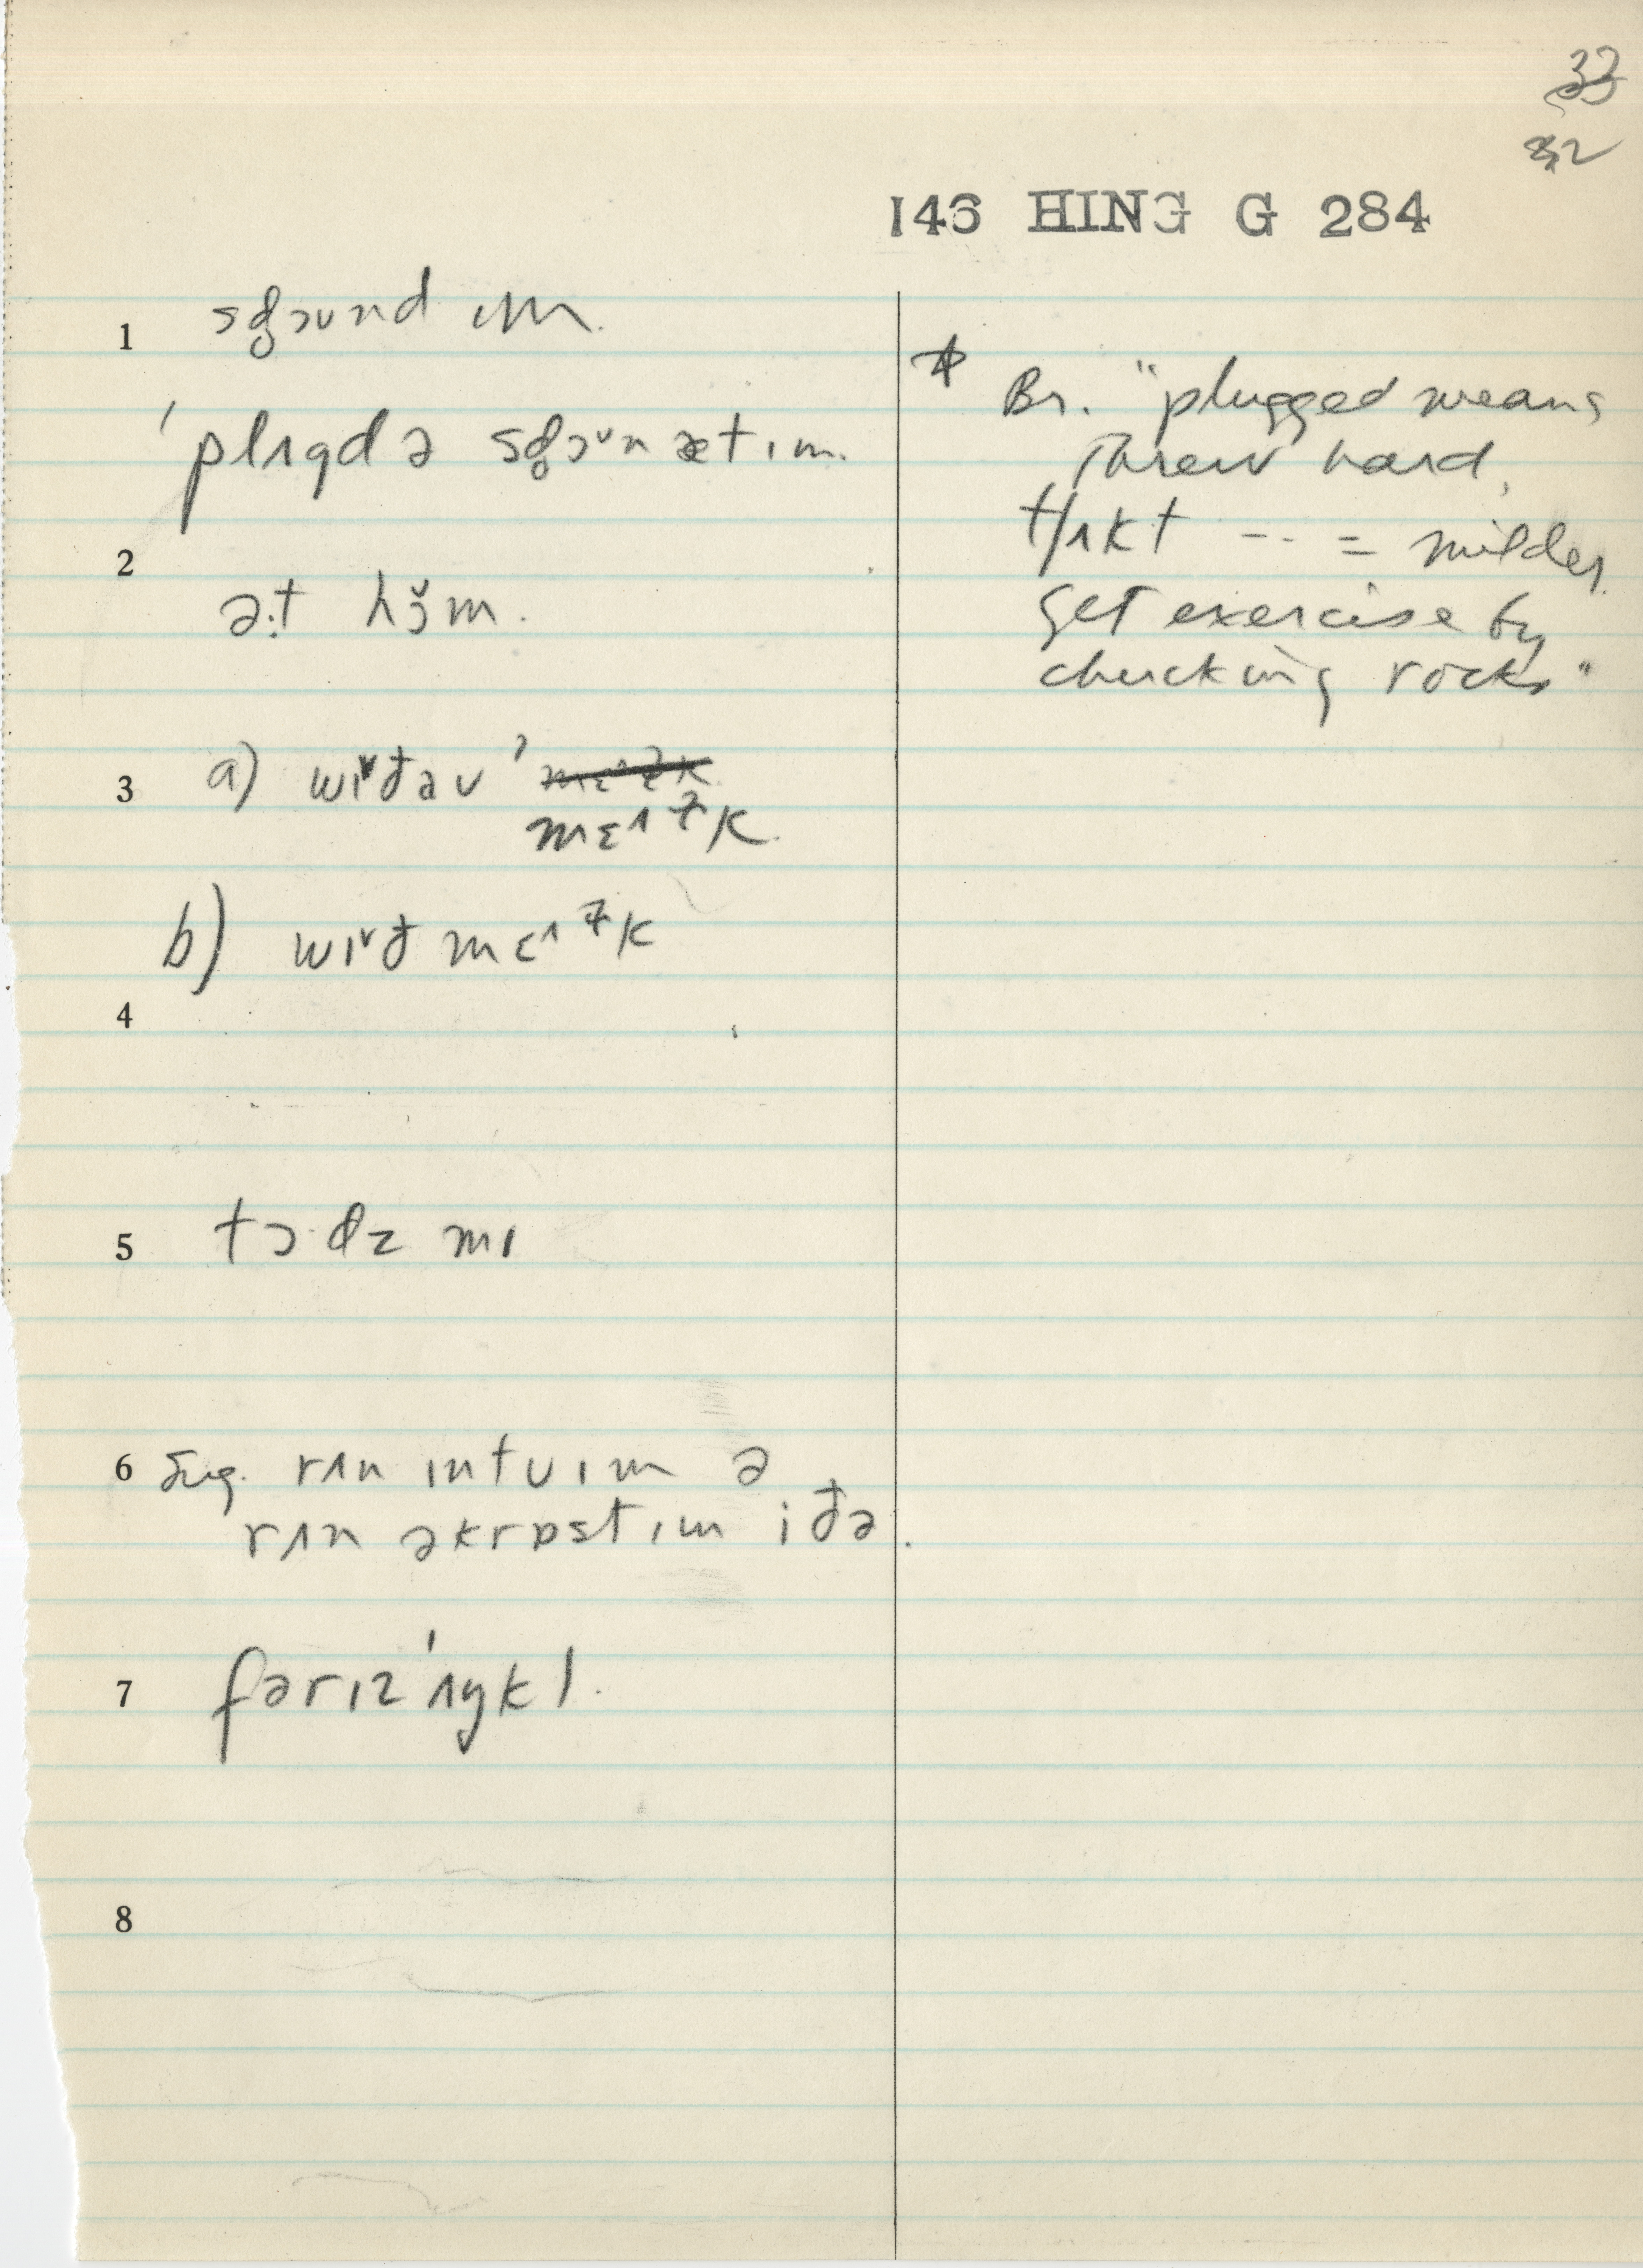 33
32
146 HING G 284
1 sʤɔʊnd ɪm.
ˈplʌgd ə sʤɔʊn æt ɪm.
2
əːt hɔ̌m.
3 a) wɪˇðəʊ ˈ
mɛᶺɫk.
b) wɪˇð mɛᶺɫk
4
5 tɔ·dz mɪ
6 sug. rʌn ɪntʊ ɪm ə
rʌn əkrɒst ɪm iðə.
7 fərɪz ˈʌŋkl.
8
* Br. "plugged means
threw hard,
tʃʌkt -- = milder.
get exercise by
chucking rocks"